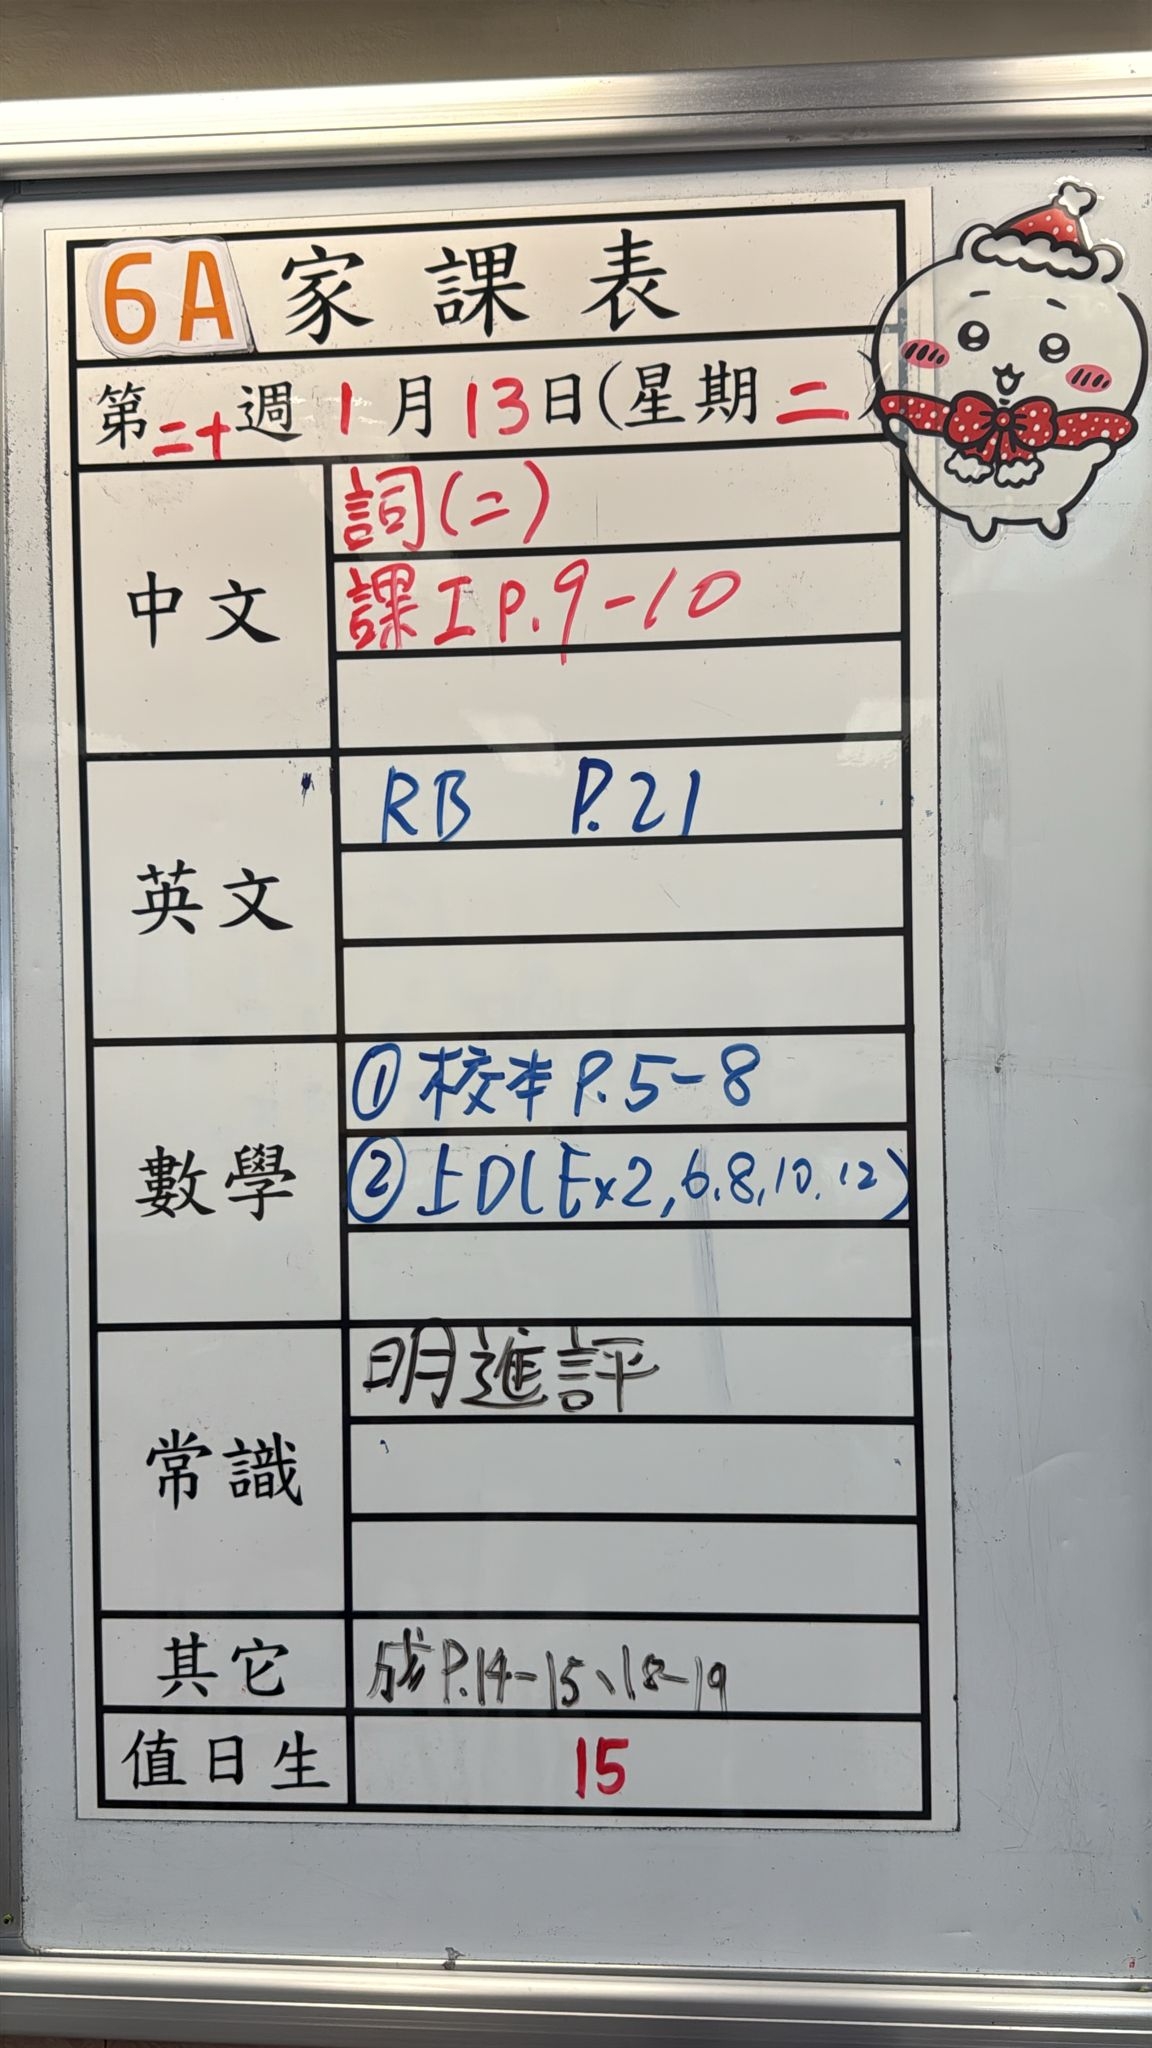 6A 家課表
第二十週 1月13日(星期二)
中文
詞(二)
課工P.9-10
英文
RB P.21
數學
① 校本 P.5-8
② 上D(Ex2,6,8,10,12)
常識
明進評
其它
成P.14-15、18-19
值日生
15